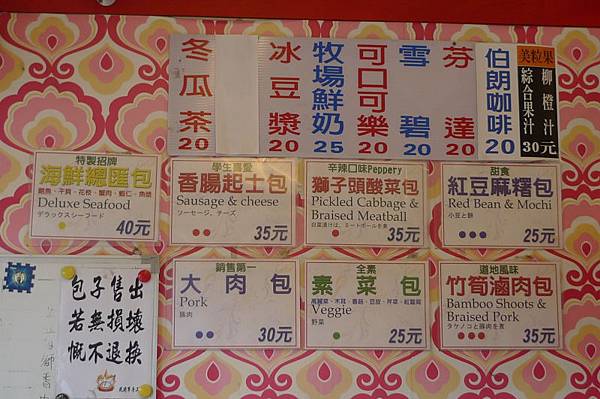 冬瓜茶 20
冰豆漿 20
牧場鮮奶 25
可口可樂 20
雪碧 20
芬達 20
伯朗咖啡 20
美粒果
柳橙汁
綜合果汁
30元
特製招牌
海鮮總匯包
鮑魚、干貝、花枝、蟹肉、蝦仁、魚漿
Deluxe Seafood
デラックスシーフード
40元
學生喜愛
香腸起士包
Sausage & cheese
ソーセージ、チーズ
35元
辛辣口味Peppery
獅子頭酸菜包
Pickled Cabbage &
Braised Meatball
白菜漬けは、ミートボールを煮
35元
甜食
紅豆麻糬包
Red Bean & Mochi
小豆と餅
25元
銷售第一
大肉包
Pork
豚肉
30元
全素
素菜包
高麗菜、木耳、香菇、豆皮、芹菜、紅蘿蔔
Veggie
野菜
25元
道地風味
竹筍滷肉包
Bamboo Shoots &
Braised Pork
タケノコと豚肉を煮
35元
包子售出
若無損壞
慨不退換